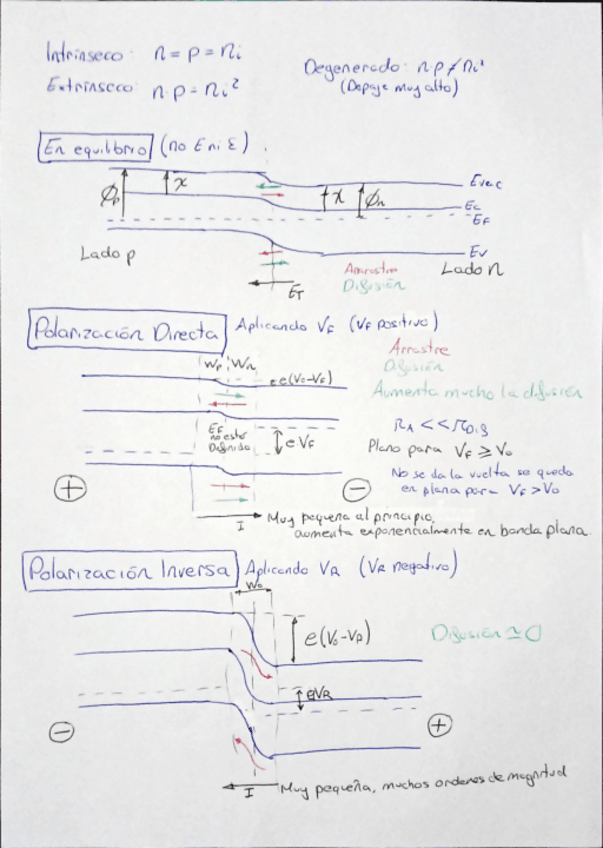 Intrínseco: n = p = ni
Extrínseco: n·p = ni²
Degenerado: n·p ≠ ni²
(Dopaje muy alto)
En equilibrio (no E ni ε).
Evac
ϕp χ χ ϕn
Ec
EF
Ev
Lado p
Arrastre
Difusión
Lado n
ET
Polarización Directa Aplicando VF (VF positivo)
Arrastre
Difusión
Wp Wn
e(V0-VF)
Aumenta mucho la difusión
EF
no esté
Definido
eVF
RA << RDif
Plano para VF ≥ V0
No se da la vuelta se queda
en plana para VF > V0
+ -
I
Muy pequeña al principio,
aumenta exponencialmente en banda plana.
Polarización Inversa Aplicando VR (VR negativo)
W0
e(V0-VR)
Difusión ≃ 0
eVR
- +
I
Muy pequeña, muchos ordenes de magnitud